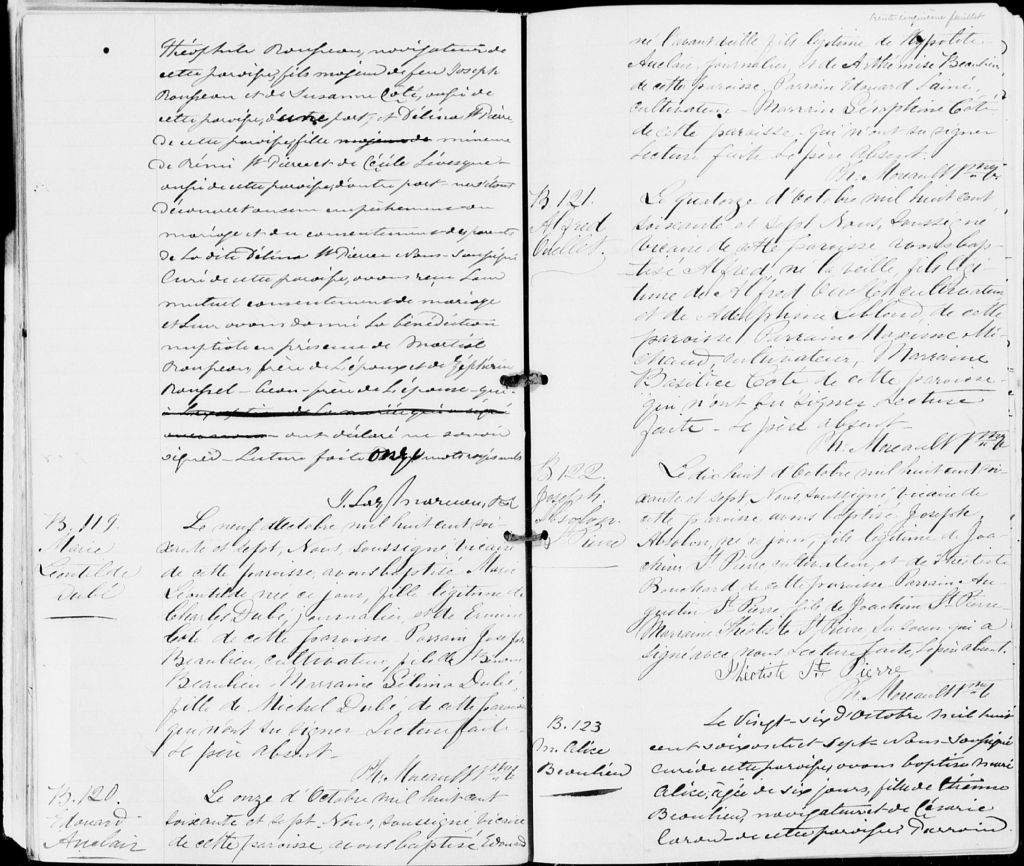 Théophile Rousseau, navigateur de
cette paroisse, fils majeur de feu Joseph
Rousseau et de Susanne Côté, aussi de
cette paroisse, d'une part, et Délina St Pierre
de cette paroisse, fille majeure de mineure
de Rémi St Pierre et de Cécile Lévesque
aussi de cette paroisse, d'autre part ne s'étant
découvert aucun empêchement au
mariage et du consentement des parents
de la dite Délina St Pierre Nous Soussigné
Curé de cette paroisse, avons reçu leur
mutuel consentement de mariage
et leur avons donné la bénédiction
nuptiale en présence de Martial
Rousseau frère de l'époux et de Zéphirin
Roussel beau-frère de l'épouse qui
ont déclaré ne savoir
signer Lecture faite onze mots rayés nuls
B. 119.
Marie
Léontilde
Dubé
Le neuf Octobre mil huit cent soi-
xante et sept, Nous, soussigné Vicaire
de cette paroisse, avons baptisé Marie
Léontilde née ce jour, fille légitime de
Charles Dubé, journalier, et de
Côté de cette paroisse Parrain
Beaulieu, cultivateur, fils de
Beaulieu Marraine Délima Dubé,
fille de Michel Dubé, de cette paroisse
qui n'ont su signer Lecture faite
le père absent
Ph. Moreault Ptre
B. 120.
Edouard
Auclair
Le onze d'Octobre mil huit cent
soixante et sept. Nous, soussigné vicaire
de cette paroisse avons baptisé Edouard
trente cinquième feuillet
né l'avant veille fils légitime de Hypolite
Auclair, journalier, et de Arthémise Beaulieu
de cette paroisse, Parrain Edouard Lainé,
cultivateur Marraine Séraphine Côté
de cette paroisse qui n'ont su signer
Lecture faite le père absent.
Ph. Moreault Ptre
B 121.
Alfred
Ouellet.
Le quatorze d'Octobre mil huit cent
soixante et sept Nous, soussigné
vicaire de cette paroisse avons bap-
tisé Alfred, né la veille, fils légi-
time de Alfred Ouellet cultivateur
et de Adelphine Leblond, de cette
paroisse Parrain Maxime Mi-
chaud, cultivateur, Marraine
Basilice Côté de cette paroisse
qui n'ont su signer Lecture
faite le père absent
Ph. Moreault Ptre
B 122.
Joseph.
Absolon.
St Pierre
Le dix huit d'Octobre mil huit cent soi-
xante et sept Nous soussigné vicaire de
cette paroisse avons baptisé Joseph,
Absolon, né ce jour, fils légitime de Joa-
chim St Pierre cultivateur, et de Théotiste
Bouchard de cette paroisse Parrain Au-
gustin St Pierre, fils de Joachim St Pierre
Marraine Théotiste St Pierre, sa soeur qui a
signé avec nous Lecture faite, le père absent.
Théotiste St Pierre
Ph. Moreault Ptre
B. 123
M. Alice
Beaulieu
Le Vingt-six d'Octobre mil huit
cent soixante et sept Nous Soussigné
curé de cette paroisse, avons baptisé Marie
Alice, âgée de six jours, fille de Etienne
Beaulieu, navigateur et de Césarie
Caron de cette paroisse, Parrain